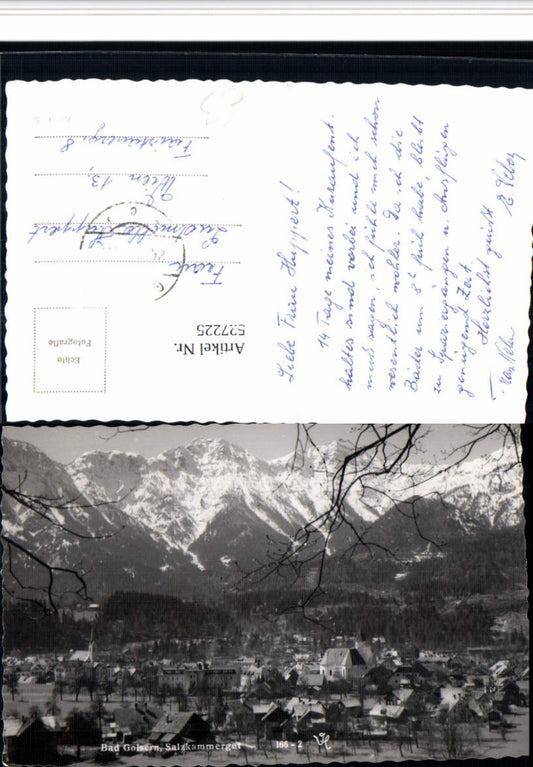 Liebe Frau Huppert!
14 Tage meines Kuraufent-
haltes sind vorbei und ich
muß sagen, ich fühle mich schon
wesentlich wohler. Da ich die
Bäder um 8h früh habe, bleibt
zu Spaziergängen u. Ausflügen
genügend Zeit.
Herzlichst grüßt
Frau
Ludmilla Huppert
Wien 13,
Artikel Nr.
527225
Echte
Fotografie
Bad Goisern, Salzkammergut 166 - 2